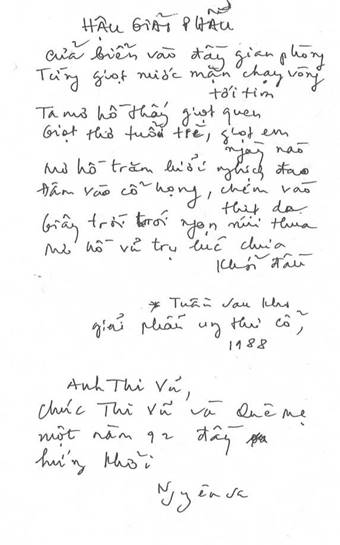 HẬU GIẢI PHẪU
Cửa biển vào đầy gian phòng
Từng giọt nước mặn chạy vòng
tới tim
Ta mơ hồ thấy giọt quen
Giọt thơ tuổi trẻ, giọt em
ngày nào
Mơ hồ trăm lưỡi nghịch đao
Đâm vào cổ họng, chém vào
thịt da
Giây trói ngọn núi thua
Mơ hồ vũ trụ lúc chưa
khởi đầu
* Tuần sau khi
giải phẫu ung thư cổ,
1988
Anh Thi Vũ,
chúc Thi Vũ và Quê mẹ
một năm 92 đầy
hứng khởi
Nguyên Sa